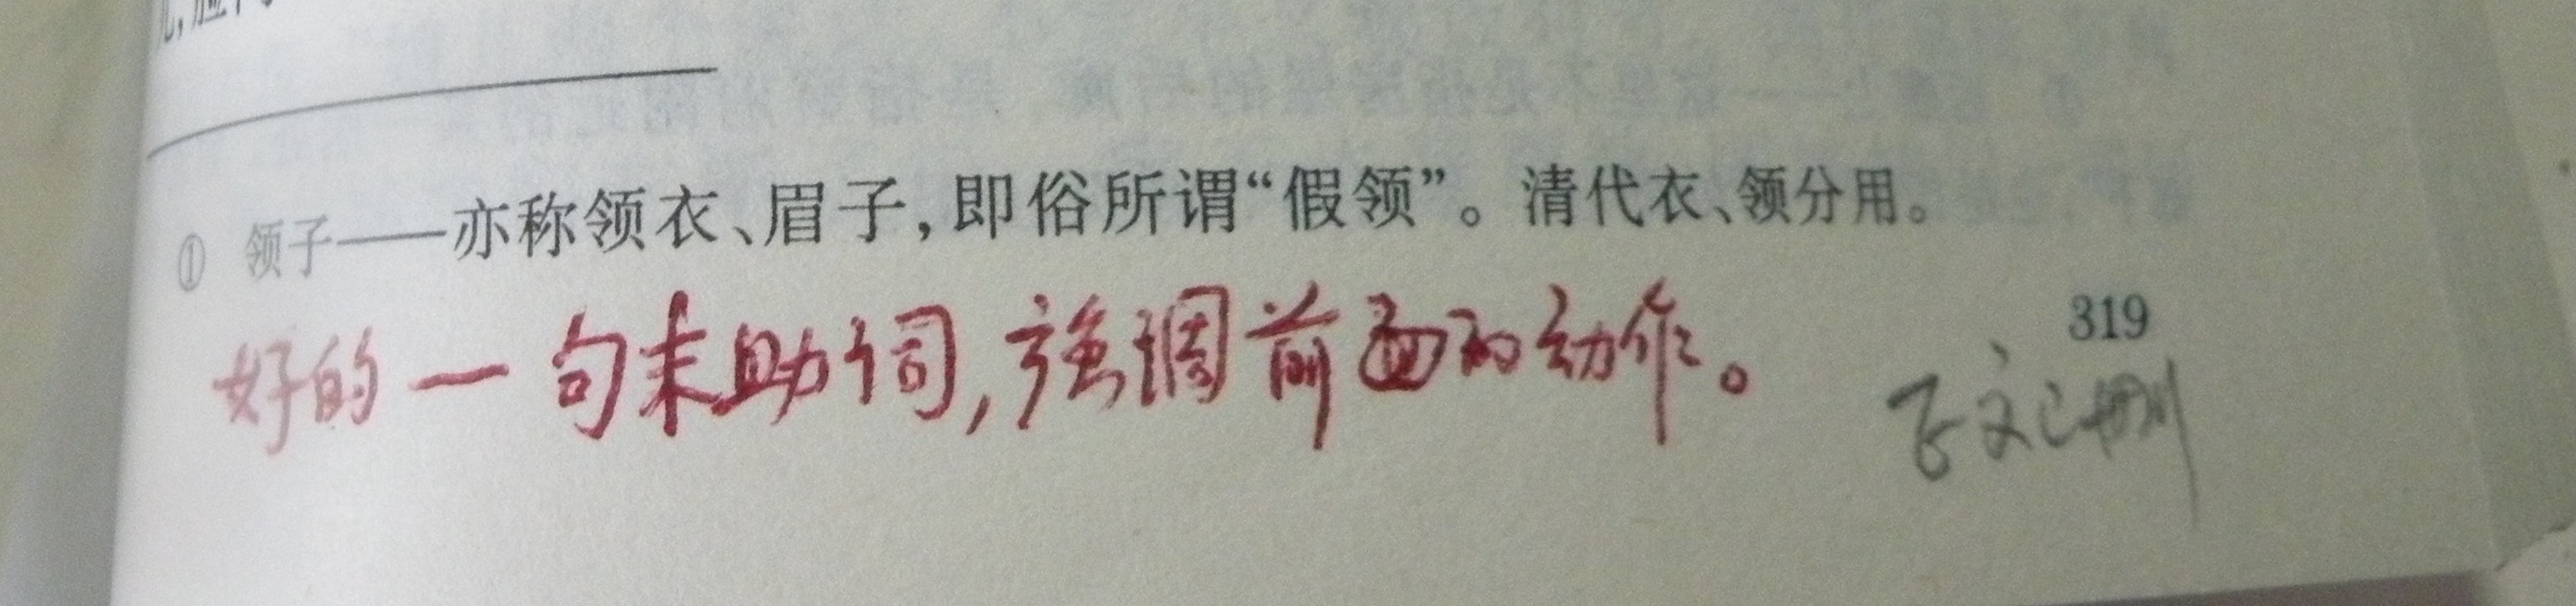 ① 领子——亦称领衣、眉子,即俗所谓“假领”。清代衣、领分用。
好的一句末助词,强调前面的动作。
319